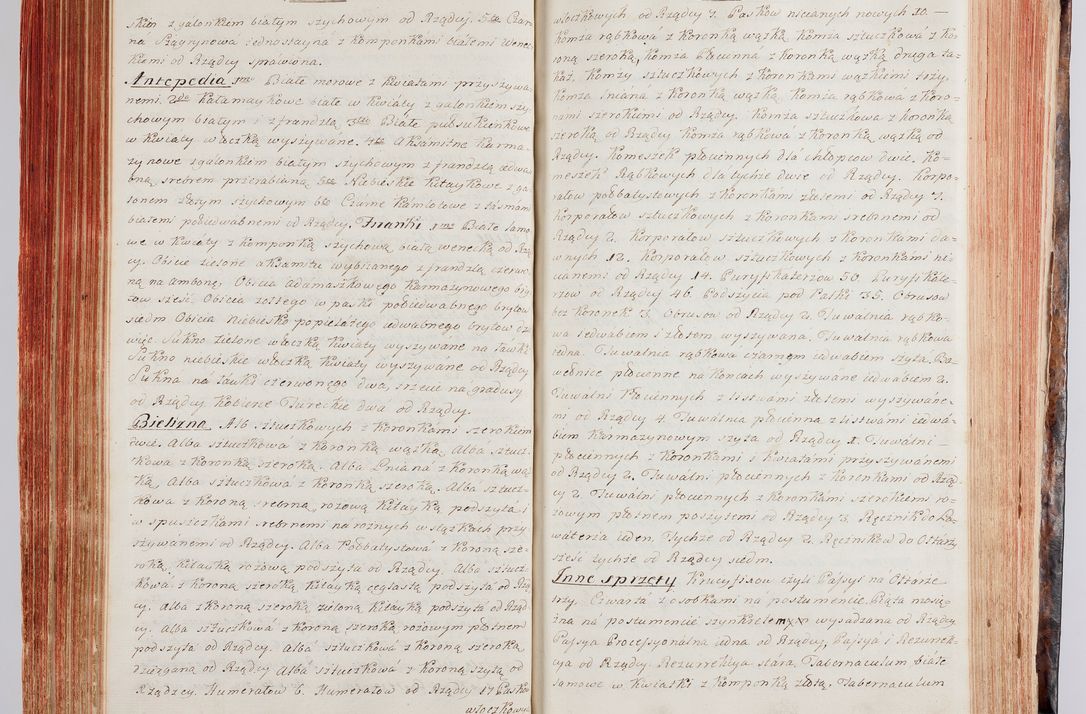 skiem z galonkiem białym szychowym od Rządcy. 5ta Czar
na Szagrynowa jednostayna z komponkami białemi wenec
kiemi od Rządcy sprawiona.
Antepedia 1mo Białe morowe z kwiatami przyszywa
nemi. 2do kałamaykowe białe w kwiaty z galonkiem szy
chowym białym i z frandzlą 3tio Białe pułsukienkowe
w kwiaty włoczką wyszywane. 4to Aksamitne karma
zynowe z galonkiem białym szychowym z frandzlą iedwa
bną srebrem przerabianą 5to Niebieskie kitaykowe z ga
lonem szychowym 6to Czarne kamlotowe z
białemi połiedwabnemi od Rządcy. Firanki 1mo Białe lamo
we w kwiaty z komponką szychową białą wenecką od Rzą
cy. Obicie zielone aksamitu wybijanego z frandzlą czerwo
ną na ambonę, Obicia adamaszkowego karmazynowego bry
tow sześć. Obicia żołtego w paski połiedwabnego brytow
siedm Obicia niebiesko popielatego iedwabnego brytow
Sukno zielone włoczką kwiaty wyszywane na ławki
Sukno niebieskie włoczką kwiaty wyszywane od Rządcy
Sukna na ławki czerwonego dwa, trzecie na gradusy
od Rządcy kobierce Tureckie dwa od Rządcy.
Bielizna Alb sztuczkowych z koronkami szerokiem
dwie. Alba sztuczkowa z koronką wązką, Alba sztucz
kowa z koronką szeroką. Alba Lniana z koronką wąz
ką, Alba sztuczkowa z koronką szeroką. Alba sztucz
kowa z koroną srebrną, rożową kitayką podszyta i
w spusickami srebrnemi na rożnych wstązkach przy
szywanemi od Rządcy. Alba Podbatystowa z koroną sze
roką, kitayką rożową podszyta od Rządcy. Alba sztucz
kowa z koroną szeroką kitayką ceglastą podszyta od Rzą
cy. Alba z koroną szeroką zieloną kitayką podszyta od Rząd
cy. Alba sztuczkowa z koroną szeroką rożowym płotnem
podszyta od Rządcy. Alba sztuczkowa z koroną szeroką
dziergana od Rządcy Alba sztuczkowa z koroną szytą od
Rządcy. Humerałow 6. Humerałow od Rządcy 17 Paskow
włoczkowych
włoczkowych od Rządcy 2. Paskow nicianych nowych 10 —
Komza rąbkowa z koronką wązką komza sztuczkowa z ko
roną szeroką, komza Płocienna z koronką wązką druga ta
każ. Komzy sztuczkowych z koronkami wązkiemi trzy.
Komza lniana z koronką wązką komza rąbkowa z koron
kami szerokiemi od Rządcy. Komza sztuczkowa z koronką
szeroką od Rządcy Komza rąbkowa z koronką wązką od
Rządcy. Komeszek płociennych dla chłopcow dwie. Ko
meszek Rąbkowych dla tychże dwie od Rządcy. Korpo
rałow podbatystowych z koronkami złotemi od Rządcy
Korporałow sztuczkowych z koronkami srebrnemi od
Rządcy 2. Korporałow sztuczkowych z koronkami da
wnych 12. Korporałow sztuczkowych z koronkami ni
cianemi od Rządcy 14. Puryfikaterzow 50. Puryfikate
rzow od Rządcy 46. Podszycia pod Palki 35. Obrusow
bez koronek 3. Obrusow od Rządcy 2. Tuwalnia rąbko
wa iedwabiem i złotem wyszywana. Tuwalnia rąbkowa
iedna. Tuwalnia rąbkowa czarnem iedwabiem szyta. Ba
wełnice płocienne na końcach wyszywane iedwabiem 2.
Tuwalni Płociennych z listwami złotemi wyszywane
mi od Rządcy 4. Tuwalnia płocienna z listwami iedwa
biem karmazynowym szyta od Rządcy 1. Tuwalni
płociennych z koronkami i kwiatami przyszywanemi
od Rządcy 2. Tuwaln. płociennych z koronkami od Rząd
cy 2 Tuwalni płociennych z koronkami szerokiemi ro
żowym płotnem poszytemi od Rządcy 3. Ręcznik do La
waterza ieden. Tychże od Rządcy 2. Ręcznikow do Ołtarza
sześć tychże od Rządcy siedm.
Inne sprzęty Krucyfixow czyli Passyi na Ołtarze
trzy. Czwarta z osobkami na postumencie. Piąta mosię
żna na postumencie wysadzana od Rządcy
Passya Processyonalna iedna od Rządcy, Passya i Rezurek
cya od Rządcy. Rezurrekcya stara. Tabernaculum białe
lamowe w kwiatki z komponką złotą. Tabernaculum